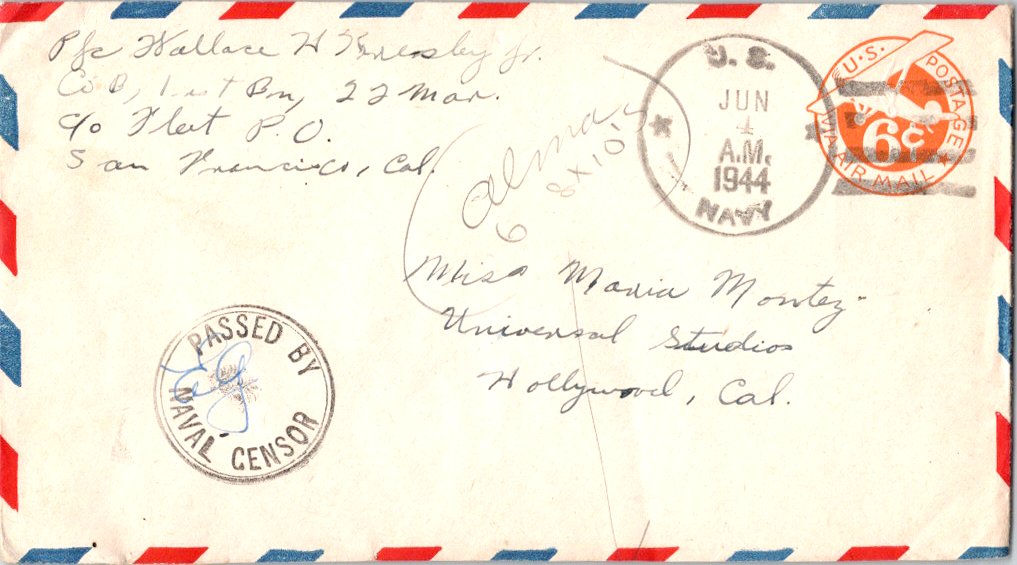 Pfc Wallace H Jr.
Co B, 1st Bn, 22 Mar.
c/o Fleet P.O.
San Francisco, Cal.
U.S.
JUN
4
A.M.
1944
NAVY
U.S. POSTAGE
6¢
VIA AIR MAIL
Alma
6 8x10's
Miss Maria Montez
Universal Studios
Hollywood, Cal.
PASSED BY
NAVAL CENSOR